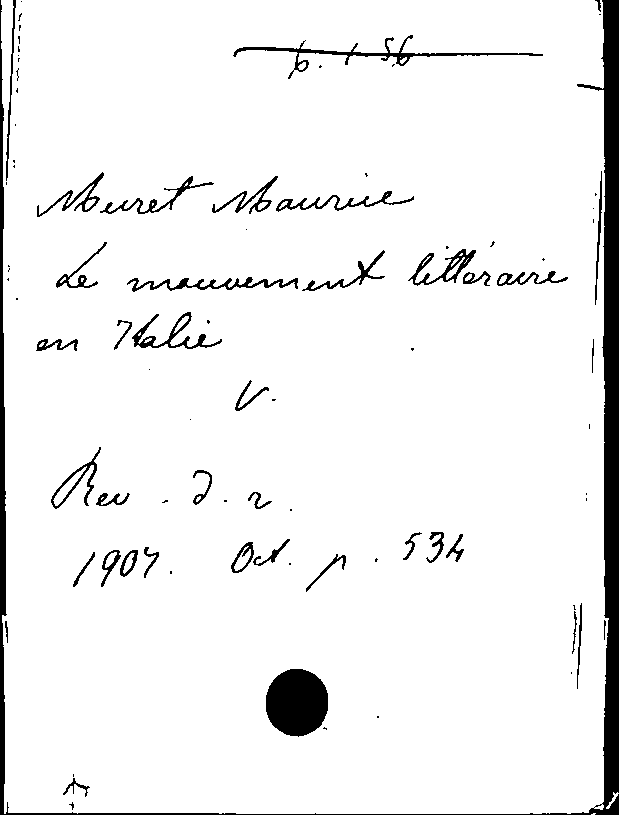 6. 1 56
Muret Maurice
Le mouvement littéraire
en Italie
V.
Rev. d. r.
1907. Oct. p. 534